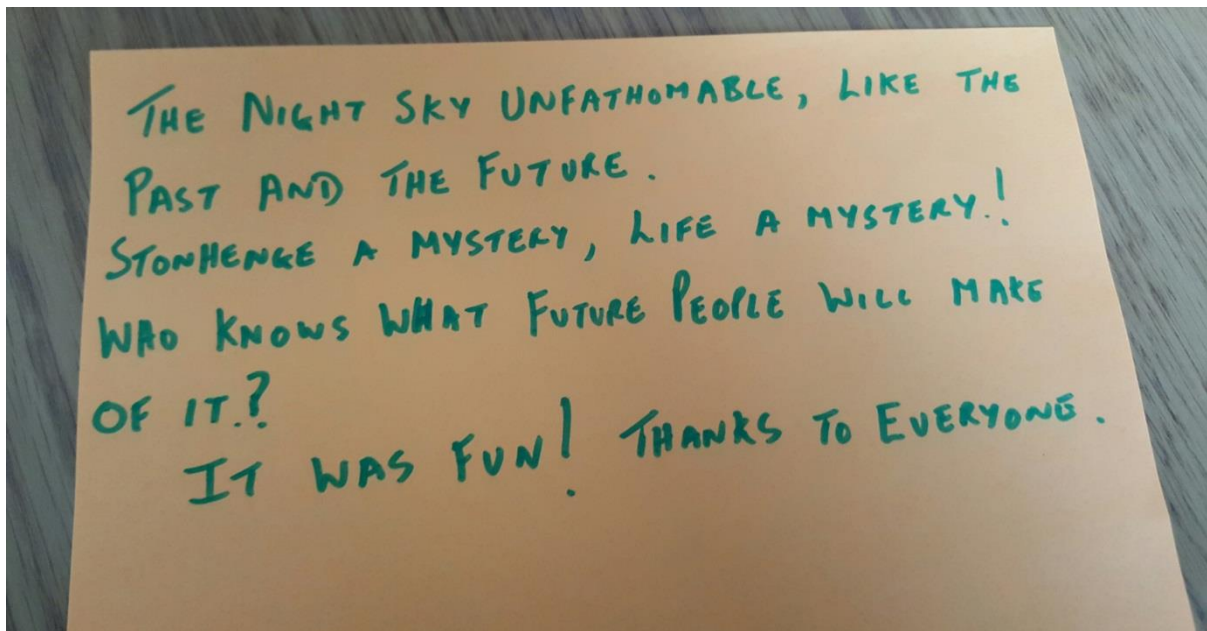 THE NIGHT SKY UNFATHOMABLE, LIKE THE
PAST AND THE FUTURE.
STONHENGE A MYSTERY, LIFE A MYSTERY.!
WHO KNOWS WHAT FUTURE PEOPLE WILL MAKE
OF IT.?
IT WAS FUN! THANKS TO EVERYONE.